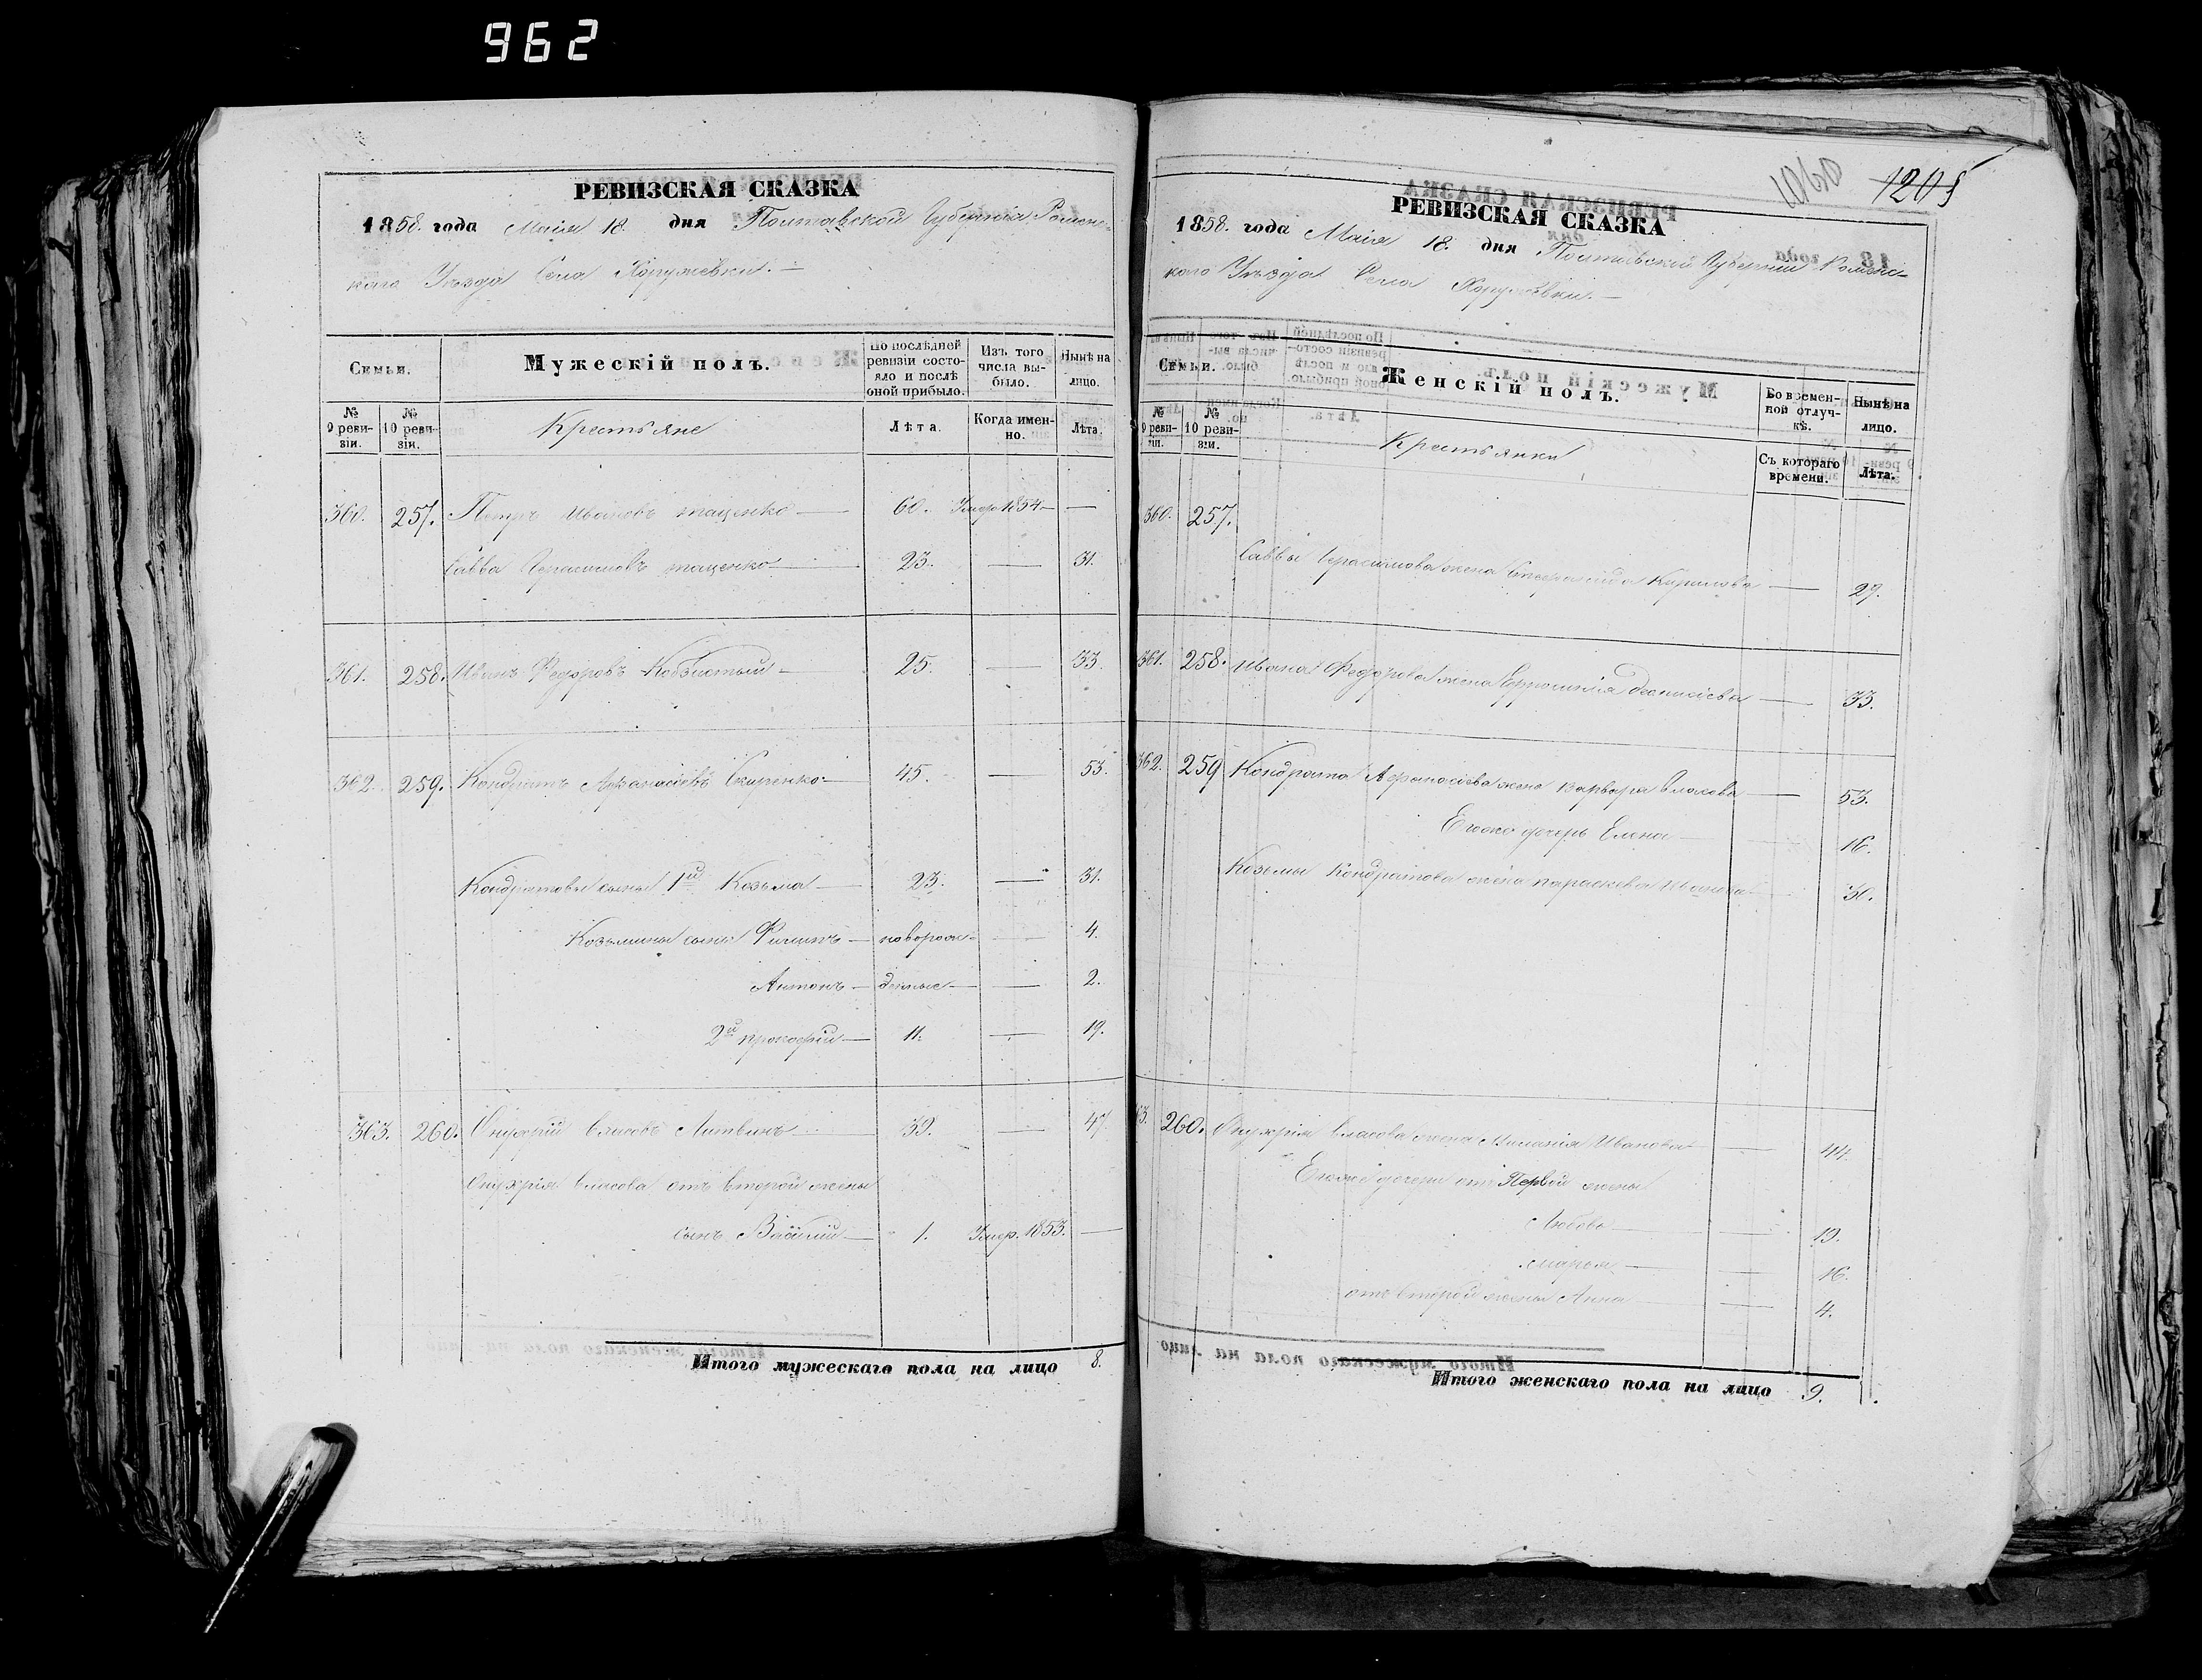 962
РЕВИЗСКАЯ СКАЗКА
1858. года Маія 18. дня Полтавской Губерніи Ромен-
скаго Уѣзда Села Хоружевки.
Семьи.
Мужескій полъ.
По послѣдней ревизіи состояло и послѣ оной прибыло.
Изъ того числа выбыло.
Нынѣ на лицо.
№ 9 ревизіи.
№ 10 ревизіи.
Крестьяне
Лѣта.
Когда именно.
Лѣта.
360. 257. Петръ Ивановъ 60. Умер 1854
Савва Герасимовъ 23. 31.
361. 258. Иванъ Федоровъ 25. 33.
362. 259. Кондратъ Афанасіевъ Скиренко 45. 53.
Кондратовы сыны 1й Козьма 23. 31.
Козьмины сыны Филипъ новорож- 4.
Антонъ денные 2.
2й Прокофій 11. 19.
363. 260. Онуфрій Власовъ Литвинъ 39. 47.
Онуфрія Власова отъ второй жены
сынъ Василій 1. Умер. 1853.
Итого мужескаго пола на лицо 8.
1205
РЕВИЗСКАЯ СКАЗКА
1858. года Маія 18. дня Полтавской Губерніи Ромен-
скаго Уѣзда Села Хоружевки.
Семьи.
Женскій полъ.
Во временной отлучкѣ.
Нынѣ на лицо.
№ 9 ревизіи.
№ 10 ревизіи.
Крестьянки
Съ котораго времени.
Лѣта.
360. 257.
Саввы Герасимова жена Кирилова 27.
361. 258. Ивана Федорова жена 33.
362. 259 Кондрата Афанасіева жена Варвара Власова 53.
Егоже дочерь Елена 16.
Козьмы Кондратова жена Параскева Иванова 30.
363. 260. Онуфрія Власова жена Меланія Иванова 44.
Егоже дочери отъ Первой жены
Любовь 19.
Марья 16.
отъ второй жены Анна 4.
Итого женскаго пола на лицо 9.